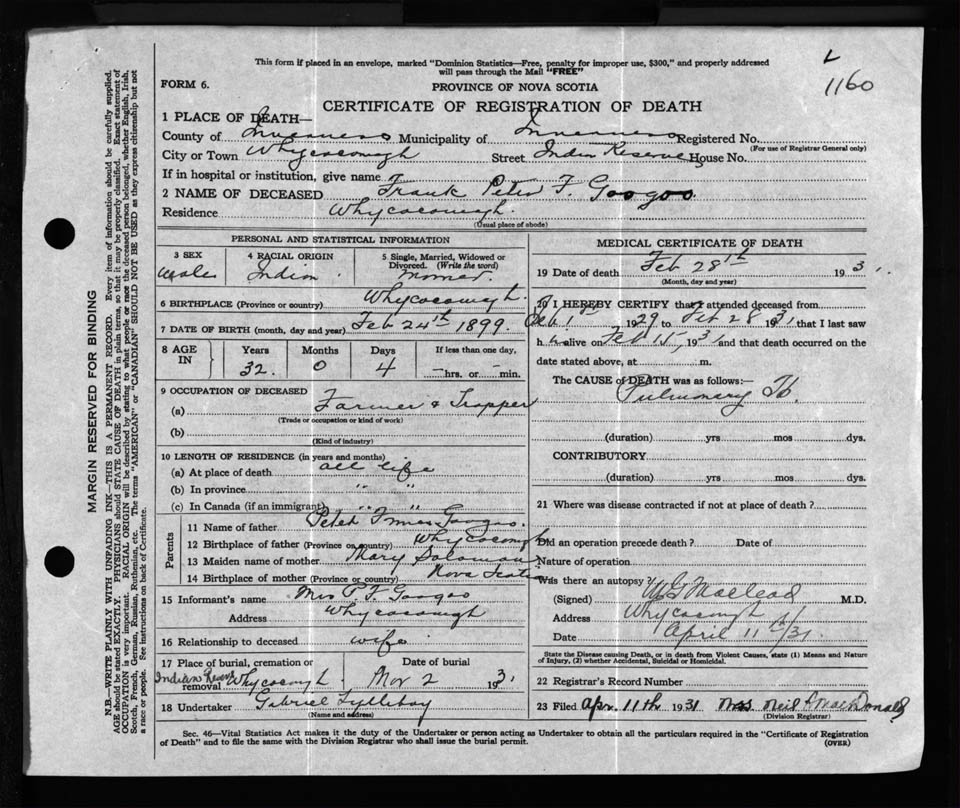 This form if placed in an envelope, marked "Dominion Statistics—Free, penalty for improper use, $300," and properly addressed
will pass through the Mail "FREE"
L
1160
FORM 6.
PROVINCE OF NOVA SCOTIA
CERTIFICATE OF REGISTRATION OF DEATH
1 PLACE OF DEATH—
County of Inverness Municipality of Inverness Registered No.
(For use of Registrar General only)
City or Town Whycocomagh Street Indian Reserve House No.
If in hospital or institution, give name
2 NAME OF DECEASED Frank Peter F. Googoo
Residence Whycocomagh.
(Usual place of abode)
PERSONAL AND STATISTICAL INFORMATION
3 SEX
Male
4 RACIAL ORIGIN
Indian
5 Single, Married, Widowed or
Divorced. (Write the word)
6 BIRTHPLACE (Province or country) Whycocomagh.
7 DATE OF BIRTH (month, day and year) Feb 24th 1899.
8 AGE IN
Years 32.
Months 0
Days 4
If less than one day,
hrs. or min.
9 OCCUPATION OF DECEASED
(a) Farmer & Trapper
(Trade or occupation or kind of work)
(b)
(Kind of industry)
10 LENGTH OF RESIDENCE (in years and months)
(a) At place of death all life
(b) In province " "
(c) In Canada (if an immigrant) " "
Parents
11 Name of father Peter Googoo.
12 Birthplace of father (Province or country) Whycocomagh
13 Maiden name of mother Mary Solomon
14 Birthplace of mother (Province or country) Nova Scotia
15 Informant's name Mrs P F Googoo
Address Whycocomagh
16 Relationship to deceased wife
17 Place of burial, cremation or
removal Indian Reserve Whycocomagh
Date of burial
Mar 2 1931
18 Undertaker Gabriel
(Name and address)
MEDICAL CERTIFICATE OF DEATH
19 Date of death Feb 28th 1931.
(Month, day and year)
20 I HEREBY CERTIFY that I attended deceased from
1st 1929 to Feb 28 1931 that I last saw
him alive on Feb 15, 1931 and that death occurred on the
date stated above, at m.
The CAUSE of DEATH was as follows:—
Pulmonary Tb.
(duration) yrs mos dys.
CONTRIBUTORY
(duration) yrs mos dys.
21 Where was disease contracted if not at place of death?
Did an operation precede death? Date of
Nature of operation
Was there an autopsy?
(Signed) MacLeod M.D.
Address Whycocomagh
Date April 11th/31
State the Disease causing Death, or in death from Violent Causes, state (1) Means and Nature
of Injury, (2) whether Accidental, Suicidal or Homicidal.
22 Registrar's Record Number
23 Filed Apr. 11th 1931 Mrs Neil MacDonald
(Division Registrar)
Sec. 46—Vital Statistics Act makes it the duty of the Undertaker or person acting as Undertaker to obtain all the particulars required in the "Certificate of Registration
of Death" and to file the same with the Division Registrar who shall issue the burial permit.
(OVER)
MARGIN RESERVED FOR BINDING
N.B.—WRITE PLAINLY WITH UNFADING INK—THIS IS A PERMANENT RECORD. Every item of information should be carefully supplied.
AGE should be stated EXACTLY. PHYSICIANS should STATE CAUSE OF DEATH in plain terms, so that it may be properly classified. Exact statement of
OCCUPATION is very important. RACIAL ORIGIN will be described by stating to what people or race the deceased person belonged, whether English, Irish,
Scotch, French, German, Russian, Ruthenian, etc. The terms "AMERICAN" or "CANADIAN" SHOULD NOT BE USED as they express citizenship but not
a race or people. See instructions on back of Certificate.